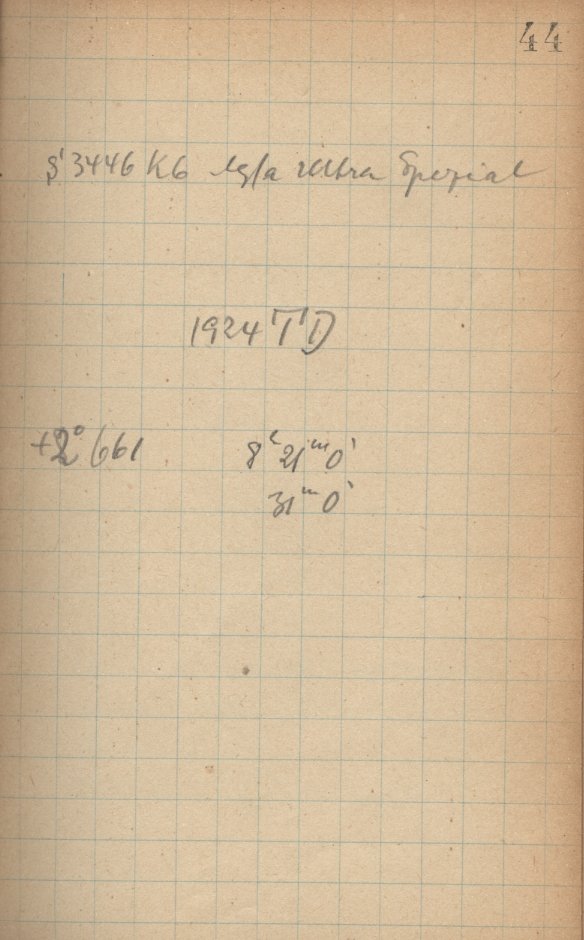 44
S 3446 K6 Agfa Ultra Spezial
1924 TD
+2° 661 8ʰ 21ᵐ 0ˢ
31ᵐ 0ˢ